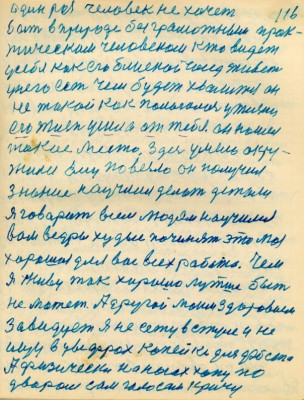 один раз человек не хочет 116
быть в природе безграмотным прак-
тическим человеком кто видет
у себя как его близкой сосед живет
у него есть чем будет хвалится он
не такой как полагался у жизни
его жизь ушла от тебя он нашел
такое место. Здря умело окру-
жили ему повезло он получил
знание научили делат детали
Я говорит всем людям научился
вам ведры худые починят это моя
хорошая для вас всех работа. Чем
я живу так хорошо лутше быт
не может А другой моим здоровием
завидует Я не сету в стуле и не
ищу в ведерах копейки для
А физически на ногах хожу по
двором сам голосом кричу